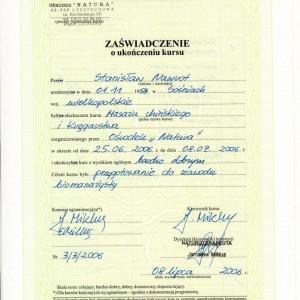 OŚRODEK "NATURA"
42-229 CZĘSTOCHOWA
ZAŚWIADCZENIE
o ukończeniu kursu
Pan/i Stanisław Nawrot
urodzony/a w dniu 01.11 19 w Sośniach
woj. wielkopolskie
był/a słuchaczem kursu Masażu chińskiego
i Kręgarstwa
zorganizowanego przez Ośrodek „Natura”
w okresie od dnia 25.06.2006 r. do dnia 08.07.2006 r.
i ukończył/a kurs z wynikiem ogólnym bardzo dobrym
Celem kursu było przygotowanie do zawodu
biomasażysty
Komisja egzaminacyjna*) Kierownik kursu
NATUROTERAPEUTA
Nr 3/3/2006
08 lipca 2006 r.
Skala ocen: celujący, bardzo dobry, dobry, dostateczny, dopuszczający.